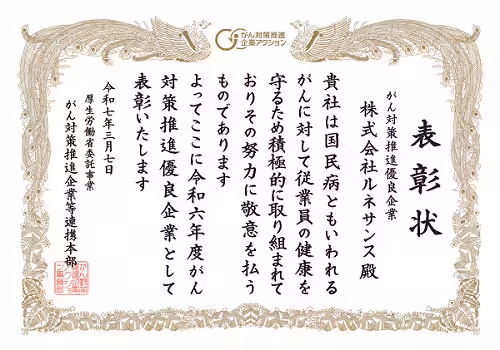 がん対策推進
企業アクション
表彰状
がん対策推進優良企業
株式会社ルネサンス殿
貴社は国民病ともいわれる
がんに対して従業員の健康を
守るため積極的に取り組まれて
おりその努力に敬意を払う
ものであります
よってここに令和六年度がん
対策推進優良企業として
表彰いたします
令和七年三月七日
厚生労働省委託事業
がん対策推進企業等連携本部